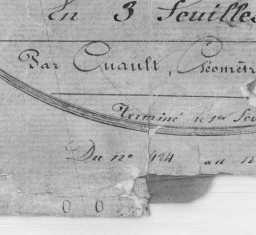 En 3 Feuilles
Par Cuault, Géomètr
Terminé le 1er
Du no 424 au n
0 0